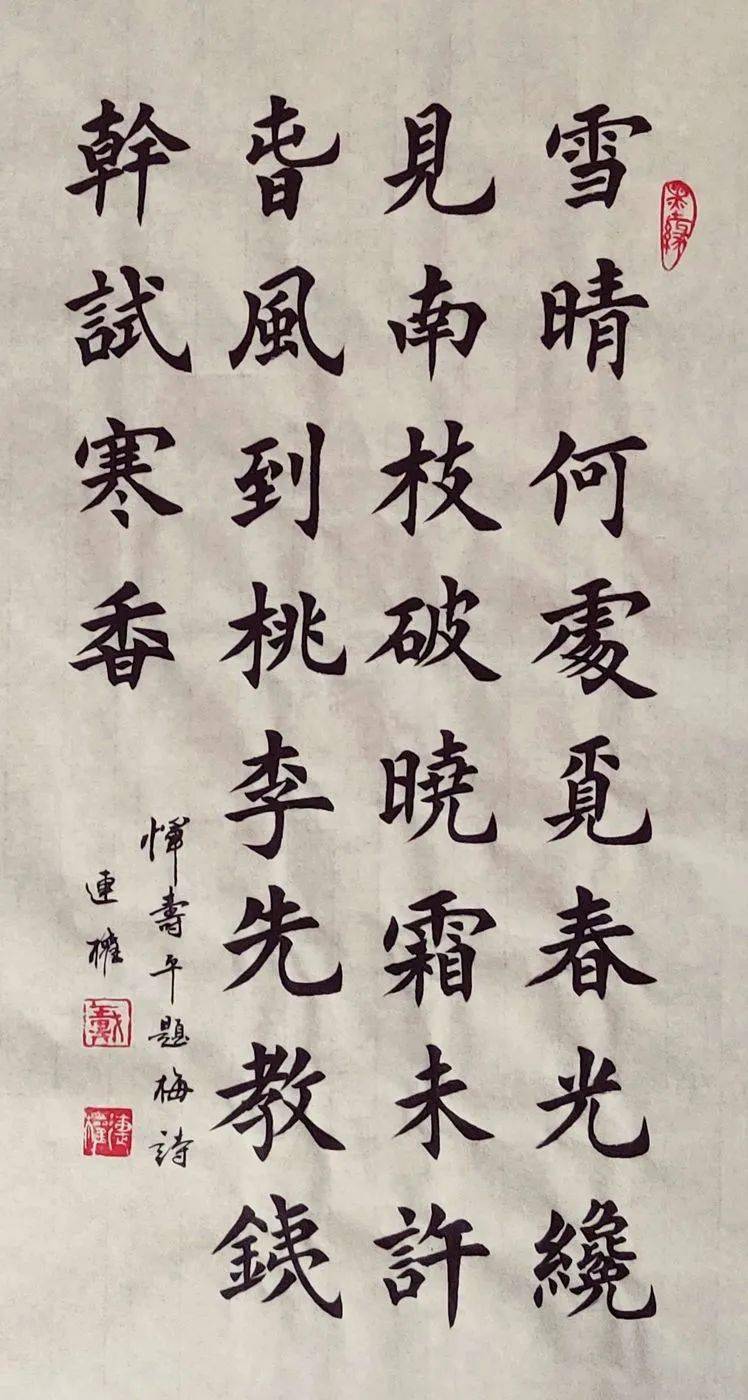 雪晴何處覓春光纔
見南枝破曉霜未許
旾風到桃李先教銕
幹試寒香
惲壽平題梅詩
連權
戴
連權